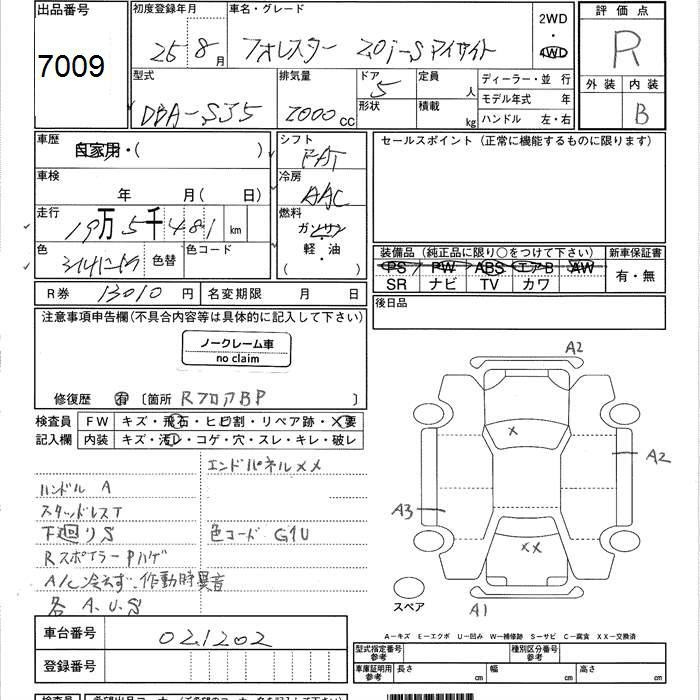 出品番号
7009
初度登録年月
25年8月
車名・グレード
フォレスター 2.0i-S アイサイト
2WD
・
4WD
評価点
R
外装 内装
B
型式
DBA-SJ5
排気量
2000cc
ドア
5
形状
定員
人
積載
kg
ディーラー・並行
モデル年式 年
ハンドル 左・右
車歴
自家用・( )
シフト
FAT
セールスポイント(正常に機能するものに限ります)
車検
年 月(日)
冷房
AAC
走行
19万5千481km
燃料
ガソリン
軽・油
( )
色
色替
色コード
装備品(純正品に限り○をつけて下さい)
PS PW ABS エアB AW
SR ナビ TV カワ
新車保証書
有・無
R券 13010円
名変期限 月 日
後日品
注意事項申告欄(不具合内容等は具体的に記入して下さい)
ノークレーム車
no claim
修復歴 有 〔箇所 RフロアBP 〕
検査員
記入欄
FW キズ・飛石・ヒビ割・リペア跡・X要
内装 キズ・汚レ・コゲ・穴・スレ・キレ・破レ
エンドパネルXX
ハンドル A
スタッドレスT
下廻りS
色コード G1U
RスポイラーPハゲ
A/C冷えず、作動時異音
各 A.U.S
A2
X
A2
A3
XX
スペア
A1
A-キズ E-エクボ U-凹み W-補修跡 S-サビ C-腐食 XX-交換済
車台番号
021202
登録番号
型式指定番号
参考
種別区分番号
参考
車庫証明用
参考
長さ cm
幅 cm
高さ cm